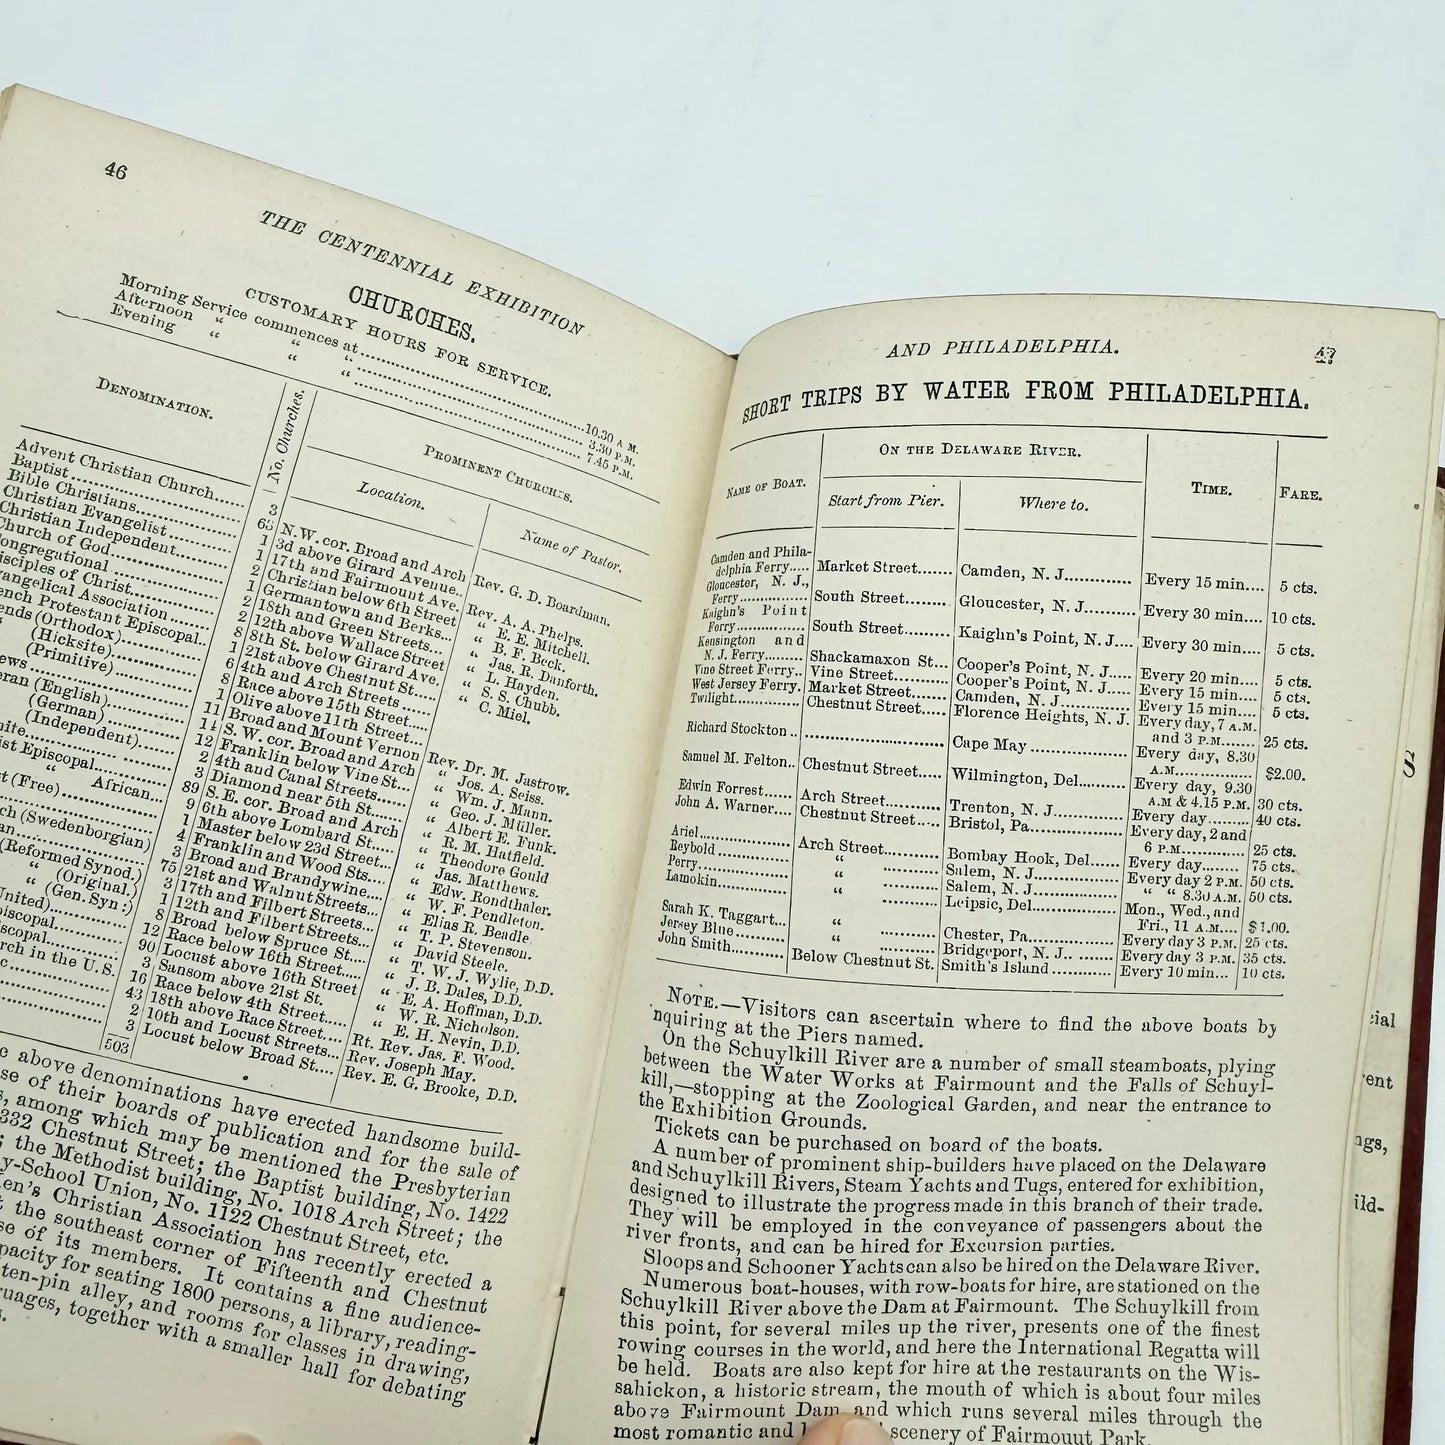 46
THE CENTENNIAL EXHIBITION
CHURCHES.
CUSTOMARY HOURS FOR SERVICE.
Morning Service commences at ........ 10.30 A.M.
Afternoon “ “ “ ........ 3.30 P.M.
Evening “ “ “ ........ 7.45 P.M.
DENOMINATION.
No. Churches.
PROMINENT CHURCHES.
Location.
Name of Pastor.
Advent Christian Church......
Baptist........
Bible Christians........
Christian Evangelist........
Christian Independent........
Church of God........
ongregational........
isciples of Christ........
vangelical Association........
ench Protestant Episcopal..
ends (Orthodox)........
“ (Hicksite)........
(Primitive)........
ews........
eran (English)........
(German)........
(Independent)......
nite........
ist Episcopal........
“ African...
st (Free)........
ch (Swedenborgian)
an........
(Reformed Synod.)
“ (Original.)
“ (Gen. Syn:)
United)........
piscopal........
scopal........
rch in the U. S.
c........
3
65
1
1
2
1
2
8
8
1
6
8
1
11
14
12
2
3
89
9
1
4
3
75
3
1
8
12
90
3
16
43
2
3
503
N. W. cor. Broad and Arch
3d above Girard Avenue..
17th and Fairmount Ave.
Christian below 6th Street
Germantown and Berks...
18th and Green Streets...
12th above Wallace Street
8th St. below Girard Ave.
21st above Chestnut St.....
4th and Arch Streets ......
Race above 15th Street....
Olive above 11th Street....
Broad and Mount Vernon
S. W. cor. Broad and Arch
Franklin below Vine St...
4th and Canal Streets......
Diamond near 5th St.......
S. E. cor. Broad and Arch
6th above Lombard St.....
Master below 23d Street...
Franklin and Wood Sts....
Broad and Brandywine....
21st and Walnut Streets...
17th and Filbert Streets...
12th and Filbert Streets...
Broad below Spruce St....
Race below 16th Street....
Locust above 16th Street
Sansom above 21st St.
Race below 4th Street.....
18th above Race Street....
10th and Locust Streets...
Locust below Broad St....
Rev. G. D. Boardman.
Rev. A. A. Phelps.
“ E. E. Mitchell.
“ B. F. Beck.
“ Jas. R. Danforth.
“ L. Hayden.
“ S. S. Chubb.
“ C. Miel.
Rev. Dr. M. Jastrow.
“ Jos. A. Seiss.
“ Wm. J. Mann.
“ Geo. J. Müller.
“ Albert E. Funk.
“ R. M. Hatfield.
“ Theodore Gould
“ Jas. Matthews.
“ Edw. Rondthaler.
“ W. F. Pendleton.
“ Elias R. Beadle.
“ T. P. Stevenson.
“ David Steele.
“ T. W. J. Wylie, D.D.
“ J. B. Dales, D.D.
“ E. A. Hoffman, D.D.
“ W. R. Nicholson.
“ E. H. Nevin, D.D.
Rt. Rev. Jas. F. Wood.
Rev. Joseph May.
Rev. E. G. Brooke, D.D.
e above denominations have erected handsome build-
se of their boards of publication and for the sale of
s, among which may be mentioned the Presbyterian
1332 Chestnut Street; the Baptist building, No. 1422
; the Methodist building, No. 1018 Arch Street; the
y-School Union, No. 1122 Chestnut Street, etc.
en's Christian Association has recently erected a
t the southeast corner of Fifteenth and Chestnut
se of its members. It contains a fine audience-
pacity for seating 1800 persons, a library, reading-
ten-pin alley, and rooms for classes in drawing,
guages, together with a smaller hall for debating
s.
AND PHILADELPHIA. 47
SHORT TRIPS BY WATER FROM PHILADELPHIA.
NAME OF BOAT. ON THE DELAWARE RIVER. TIME. FARE.
Start from Pier. Where to.
Camden and Phila-
delphia Ferry..... Market Street...... Camden, N. J............ Every 15 min.... 5 cts.
Gloucester, N. J.,
Ferry............ South Street........ Gloucester, N. J......... Every 30 min.... 10 cts.
Kaighn's Point
Ferry............ South Street........ Kaighn's Point, N. J.... Every 30 min.... 5 cts.
Kensington and
N. J. Ferry........ Shackamaxon St... Cooper's Point, N. J..... Every 20 min.... 5 cts.
Vine Street Ferry.. Vine Street......... Cooper's Point, N. J..... Every 15 min.... 5 cts.
West Jersey Ferry. Market Street...... Camden, N. J............ Every 15 min.... 5 cts.
Twilight............ Chestnut Street..... Florence Heights, N. J. Every day, 7 A.M.
and 3 P.M....... 25 cts.
Richard Stockton .. ........ Cape May .............. Every day, 8.30
A.M.............. $2.00.
Samuel M. Felton.. Chestnut Street..... Wilmington, Del....... Every day, 9.30
A.M & 4.15 P.M. 30 cts.
Edwin Forrest...... Arch Street......... Trenton, N. J........... Every day........ 40 cts.
John A. Warner.... Chestnut Street..... Bristol, Pa.............. Every day, 2 and
6 P.M............ 25 cts.
Ariel................ Arch Street.......... Bombay Hook, Del..... Every day........ 75 cts.
Reybold............. “ .......... Salem, N. J............. Every day 2 P.M. 50 cts.
Perry................ “ .......... Salem, N. J............. “ “ 8.30 A.M. 50 cts.
Lamokin............ “ .......... Leipsic, Del............. Mon., Wed., and
Fri., 11 A.M..... $1.00.
Sarah K. Taggart... “ .......... Chester, Pa.............. Every day 3 P.M. 25 cts.
Jersey Blue.......... “ .......... Bridgeport, N. J.. ...... Every day 3 P.M. 35 cts.
John Smith.......... Below Chestnut St. Smith's Island .......... Every 10 min... 10 cts.
NOTE.—Visitors can ascertain where to find the above boats by
nquiring at the Piers named.
On the Schuylkill River are a number of small steamboats, plying
between the Water Works at Fairmount and the Falls of Schuyl-
kill,—stopping at the Zoological Garden, and near the entrance to
the Exhibition Grounds.
Tickets can be purchased on board of the boats.
A number of prominent ship-builders have placed on the Delaware
and Schuylkill Rivers, Steam Yachts and Tugs, entered for exhibition,
designed to illustrate the progress made in this branch of their trade.
They will be employed in the conveyance of passengers about the
river fronts, and can be hired for Excursion parties.
Sloops and Schooner Yachts can also be hired on the Delaware River.
Numerous boat-houses, with row-boats for hire, are stationed on the
Schuylkill River above the Dam at Fairmount. The Schuylkill from
this point, for several miles up the river, presents one of the finest
rowing courses in the world, and here the International Regatta will
be held. Boats are also kept for hire at the restaurants on the Wis-
sahickon, a historic stream, the mouth of which is about four miles
above Fairmount Dam, and which runs several miles through the
most romantic and scenery of Fairmount Park.
cial
rent
ngs,
ild-